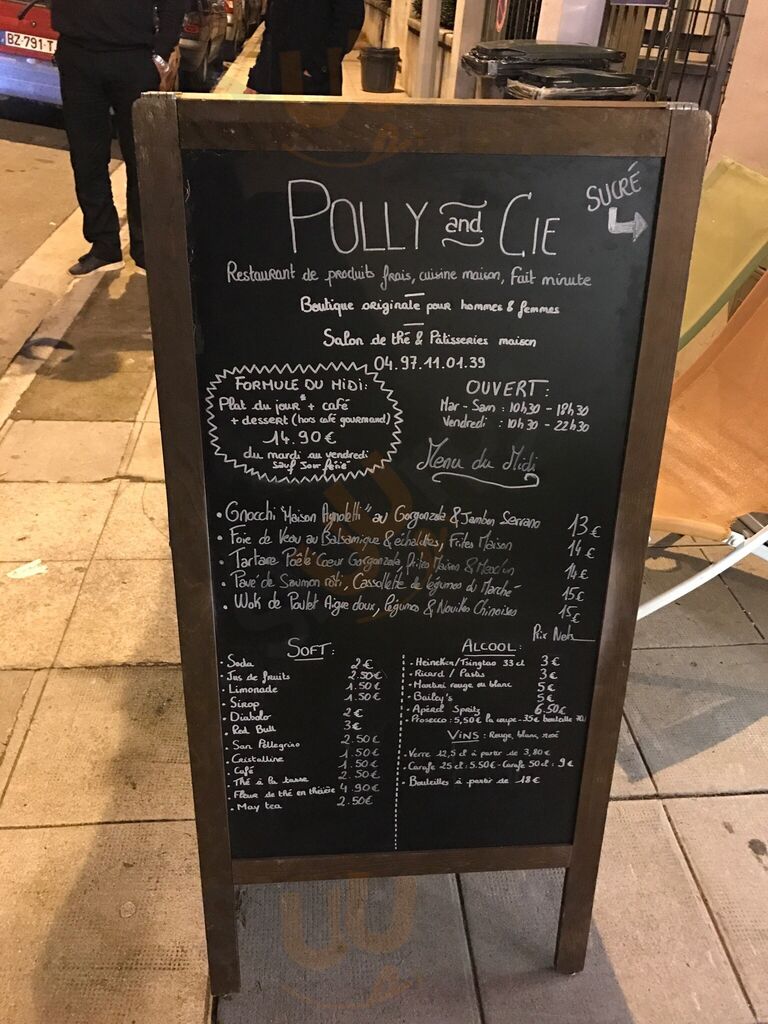 BZ-791-T
SUCRÉ
POLLY and CIE
Restaurant de produits frais, cuisine maison, Fait minute
Boutique originale pour hommes & femmes
Salon de thé & Pâtisseries maison
04.97.11.01.39
FORMULE DU MIDI:
Plat du jour* + café
+ dessert (hors café gourmand)
14.90€
du mardi au vendredi
sauf jour férié
OUVERT:
Mar - Sam : 10h30 - 18h30
Vendredi : 10h30 - 22h30
Menu du Midi
• Gnocchi "Maison Agnoletti" au Gorgonzola & Jambon Serrano 13€
• Foie de Veau au Balsamique & échalottes, Frites Maison 14€
• Tartare Poêlé Coeur Gorgonzola, frites Maison & 14€
• Pavé de Saumon rôti, Cassollette de légumes du Marché 15€
• Wok de Poulet Aigre doux, légumes & Nouilles Chinoises 15€
Prix Nets
SOFT:
• Soda 2€
• Jus de fruits 2.50€
• Limonade 1.50€
• Sirop 1.50€
• Diabolo 2€
• Red Bull 3€
• San Pellegrino 2.50€
• Cristalline 1.50€
• Café 1.50€
• Thé à la tasse 2.50€
• Fleur de thé en théière 4.90€
• May tea 2.50€
ALCOOL:
• Heineken/Tsingtao 33 cl 3€
• Ricard / Pastis 3€
• Martini rouge ou blanc 5€
• Bailey's 5€
• Apérol Spritz 6.50€
• Prosecco : 5,50€ la coupe - 35€ bouteille 70cl
VINS : Rouge, blanc, rosé
• Verre 12,5 cl à partir de 3,80€
• Carafe 25 cl : 5.50€ - Carafe 50 cl : 9€
• Bouteilles à partir de 18€